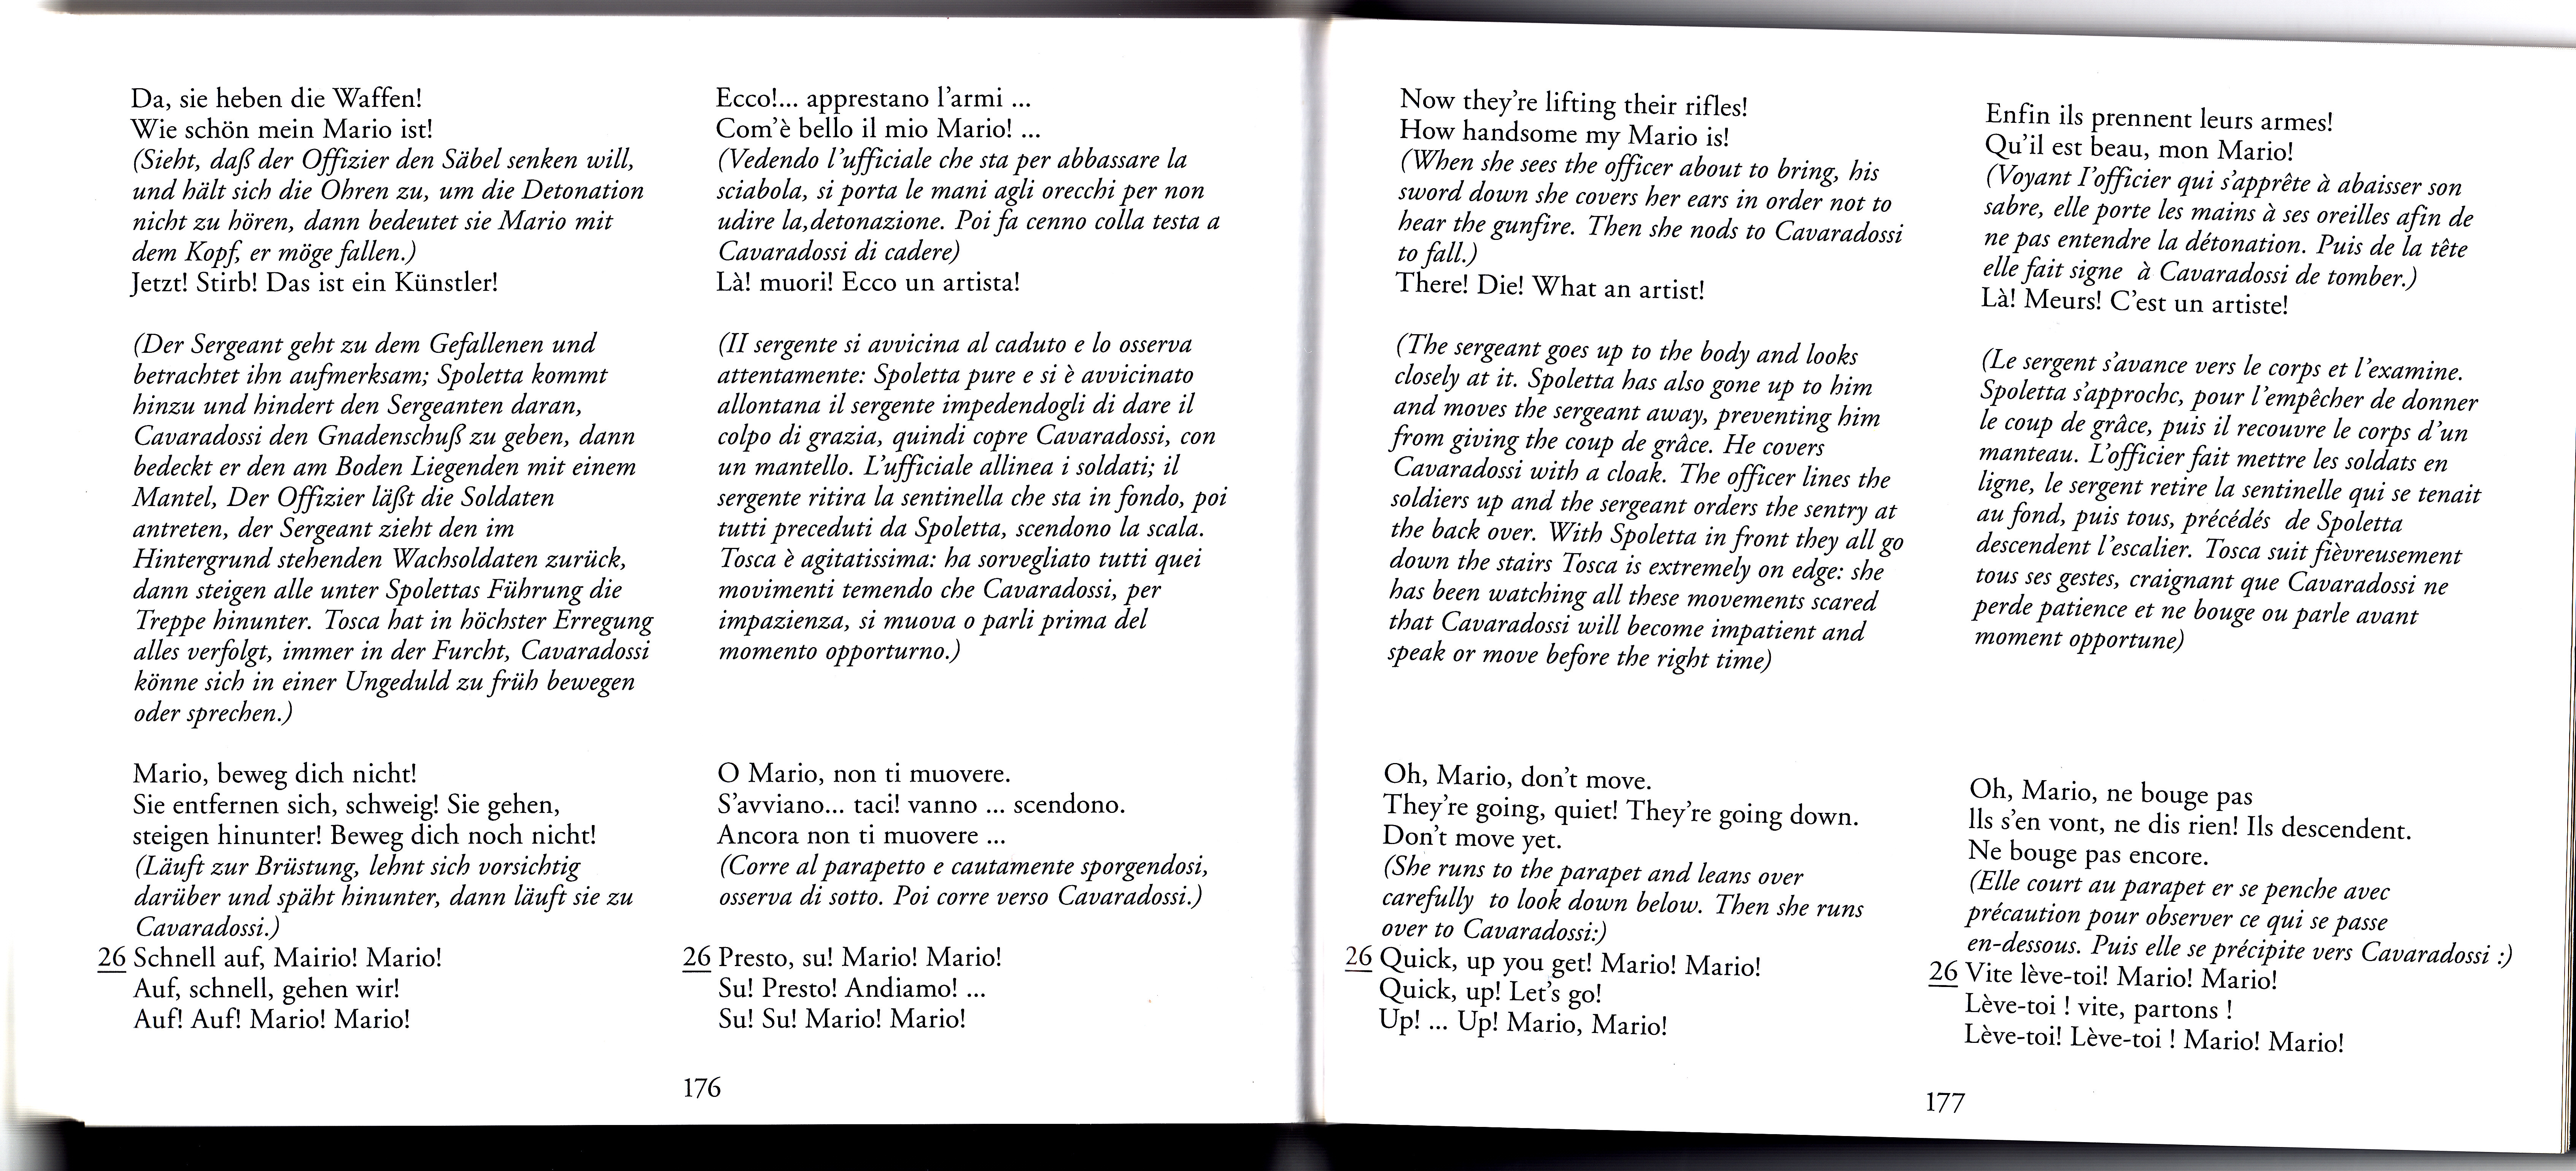 Da, sie heben die Waffen!
Wie schön mein Mario ist!
(Sieht, daß der Offizier den Säbel senken will,
und hält sich die Ohren zu, um die Detonation
nicht zu hören, dann bedeutet sie Mario mit
dem Kopf, er möge fallen.)
Jetzt! Stirb! Das ist ein Künstler!
(Der Sergeant geht zu dem Gefallenen und
betrachtet ihn aufmerksam; Spoletta kommt
hinzu und hindert den Sergeanten daran,
Cavaradossi den Gnadenschuß zu geben, dann
bedeckt er den am Boden Liegenden mit einem
Mantel, Der Offizier läßt die Soldaten
antreten, der Sergeant zieht den im
Hintergrund stehenden Wachsoldaten zurück,
dann steigen alle unter Spolettas Führung die
Treppe hinunter. Tosca hat in höchster Erregung
alles verfolgt, immer in der Furcht, Cavaradossi
könne sich in einer Ungeduld zu früh bewegen
oder sprechen.)
Mario, beweg dich nicht!
Sie entfernen sich, schweig! Sie gehen,
steigen hinunter! Beweg dich noch nicht!
(Läuft zur Brüstung, lehnt sich vorsichtig
darüber und späht hinunter, dann läuft sie zu
Cavaradossi.)
26 Schnell auf, Mairio! Mario!
Auf, schnell, gehen wir!
Auf! Auf! Mario! Mario!
Ecco!... apprestano l'armi ...
Com'è bello il mio Mario! ...
(Vedendo l'ufficiale che sta per abbassare la
sciabola, si porta le mani agli orecchi per non
udire la,detonazione. Poi fa cenno colla testa a
Cavaradossi di cadere)
Là! muori! Ecco un artista!
(II sergente si avvicina al caduto e lo osserva
attentamente: Spoletta pure e si è avvicinato
allontana il sergente impedendogli di dare il
colpo di grazia, quindi copre Cavaradossi, con
un mantello. L'ufficiale allinea i soldati; il
sergente ritira la sentinella che sta in fondo, poi
tutti preceduti da Spoletta, scendono la scala.
Tosca è agitatissima: ha sorvegliato tutti quei
movimenti temendo che Cavaradossi, per
impazienza, si muova o parli prima del
momento opporturno.)
O Mario, non ti muovere.
S'avviano... taci! vanno ... scendono.
Ancora non ti muovere ...
(Corre al parapetto e cautamente sporgendosi,
osserva di sotto. Poi corre verso Cavaradossi.)
26 Presto, su! Mario! Mario!
Su! Presto! Andiamo! ...
Su! Su! Mario! Mario!
176
Now they're lifting their rifles!
How handsome my Mario is!
(When she sees the officer about to bring, his
sword down she covers her ears in order not to
hear the gunfire. Then she nods to Cavaradossi
to fall.)
There! Die! What an artist!
(The sergeant goes up to the body and looks
closely at it. Spoletta has also gone up to him
and moves the sergeant away, preventing him
from giving the coup de grâce. He covers
Cavaradossi with a cloak. The officer lines the
soldiers up and the sergeant orders the sentry at
the back over. With Spoletta in front they all go
down the stairs Tosca is extremely on edge: she
has been watching all these movements scared
that Cavaradossi will become impatient and
speak or move before the right time)
Oh, Mario, don't move.
They're going, quiet! They're going down.
Don't move yet.
(She runs to the parapet and leans over
carefully to look down below. Then she runs
over to Cavaradossi:)
26 Quick, up you get! Mario! Mario!
Quick, up! Let's go!
Up! ... Up! Mario, Mario!
Enfin ils prennent leurs armes!
Qu'il est beau, mon Mario!
(Voyant I'officier qui s'apprête à abaisser son
sabre, elle porte les mains à ses oreilles afin de
ne pas entendre la détonation. Puis de la tête
elle fait signe à Cavaradossi de tomber.)
Là! Meurs! C'est un artiste!
(Le sergent s'avance vers le corps et l'examine.
Spoletta s'approchc, pour l'empêcher de donner
le coup de grâce, puis il recouvre le corps d'un
manteau. L'officier fait mettre les soldats en
ligne, le sergent retire la sentinelle qui se tenait
au fond, puis tous, précédés de Spoletta
descendent l'escalier. Tosca suit fièvreusement
tous ses gestes, craignant que Cavaradossi ne
perde patience et ne bouge ou parle avant
moment opportune)
Oh, Mario, ne bouge pas
lls s'en vont, ne dis rien! Ils descendent.
Ne bouge pas encore.
(Elle court au parapet er se penche avec
précaution pour observer ce qui se passe
en-dessous. Puis elle se précipite vers Cavaradossi :)
26 Vite lève-toi! Mario! Mario!
Lève-toi ! vite, partons !
Lève-toi! Lève-toi ! Mario! Mario!
177